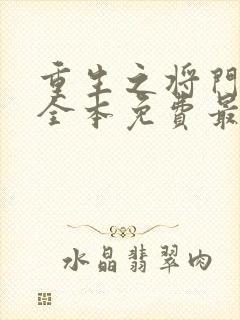 重生之将门
全本免费最
水晶翡翠肉